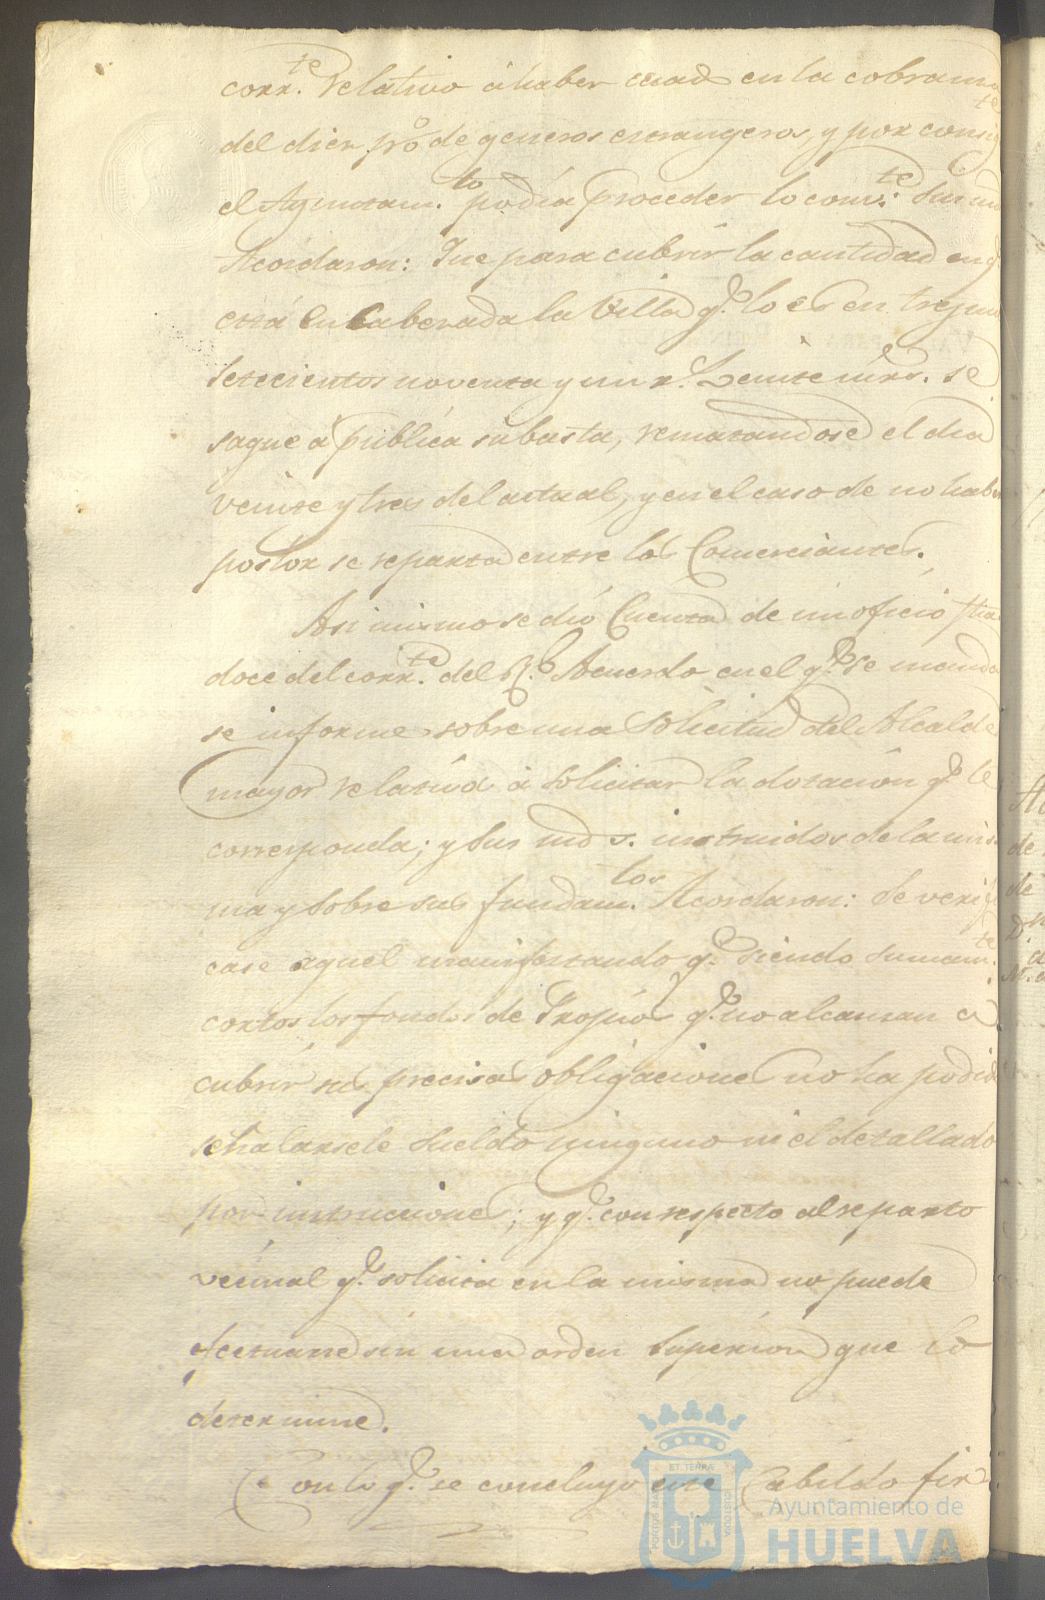 corr.te relativo á haber cesad en la cobranza
del diez p.r% de generos extrangeros, y por consig.te
el Ayuntam.to podia proceder lo conv.te Sus md
Acordaron: Que para cubrir la cantidad en q.e
está Encabezada la Villa q.e lo es en tres mil
setecientos noventa y un r.s veinte mrs. se
saque a publica subasta, rematandose el dia
veinte y tres del actual, y en el caso de no haber
postor se reparta entre los Comerciantes.
Asi mismo se dió Cuenta de un oficio fha
doce del corr.te del R.l Acuerdo en el q.e se manda
se informe sobre una solicitud del Alcalde
mayor relativa á solicitar la dotacion q.e le
corresponda; y sus md s. instruidos de la mis
ma y sobre sus fundam.tos Acordaron: Se verifi
case aquel manifestando q.e siendo sumam.te
cortos los fondos de Propios q.e no alcansan a
cubrir sus precisas obligaciones no ha podido
señalarsele sueldo ninguno ni el detallado
por instrucciones; y q.e con respecto al reparto
vecinal q.e solicita en la misma no puede
efectuarse sin una orden superior que lo
determine.
Con lo q.e se concluyo este Cabildo fir
ET TERRÆ
PORTUS MARIS
CUSTODIA
Ayuntamiento de
HUELVA